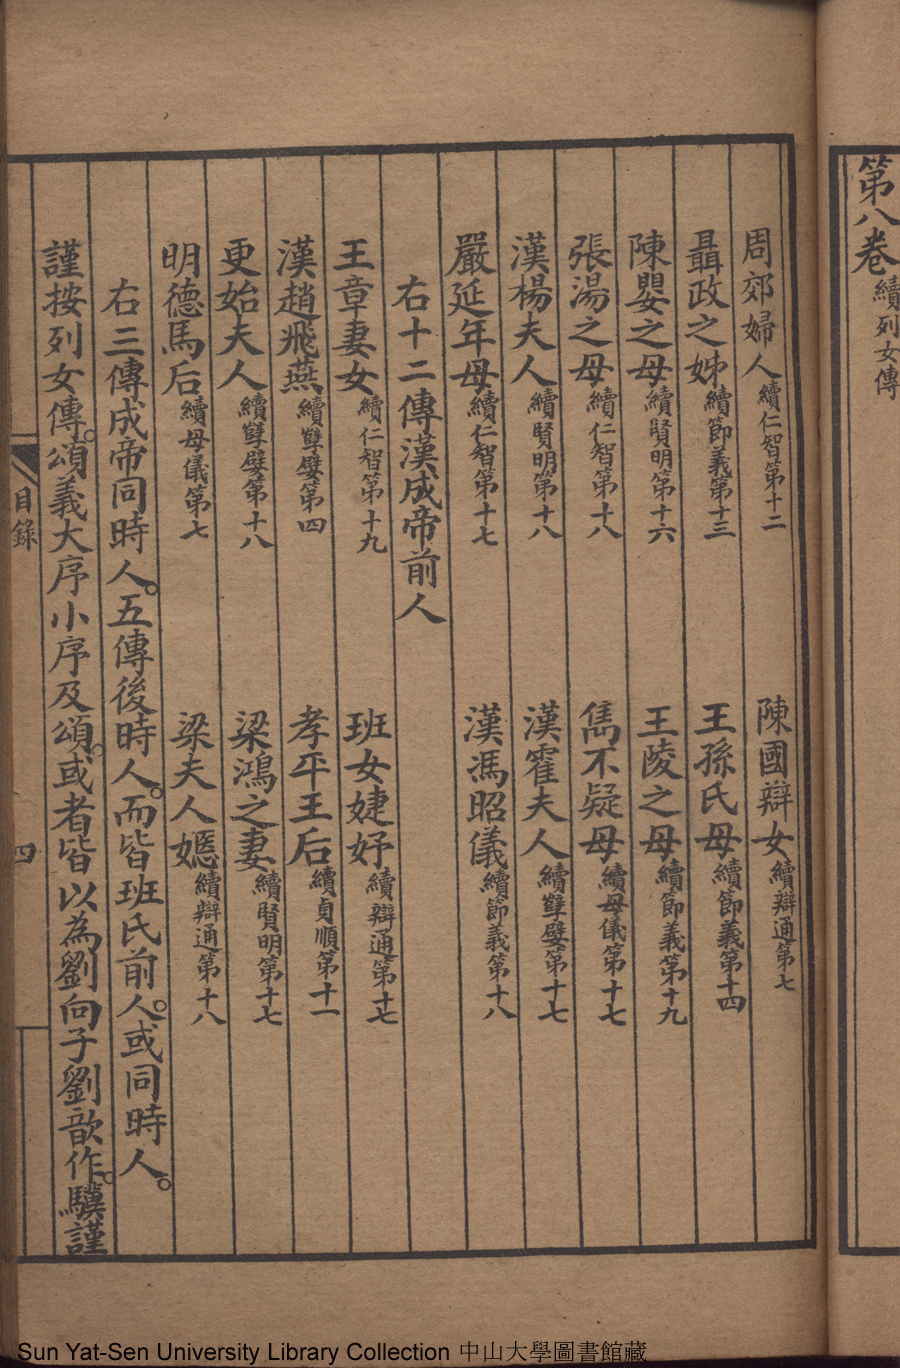 第八卷 續列女傳
周郊婦人 續仁智第十二 陳國辯女 續辯通第七
聶政之姊 續節義第十三 王孫氏母 續節義第十四
陳嬰之母 續賢明第十六 王陵之母 續節義第十九
張湯之母 續仁智第十八 雋不疑母 續母儀第十七
漢楊夫人 續賢明第十八 漢霍夫人 續孽嬖第十七
嚴延年母 續仁智第十七 漢馮昭儀 續節義第十八
右十二傳漢成帝前人
王章妻女 續仁智第十九 班女婕妤 續辯通第十七
漢趙飛燕 續孽嬖第四 孝平王后 續貞順第十一
更始夫人 續孽嬖第十八 梁鴻之妻 續賢明第十七
明德馬后 續母儀第七 梁夫人嫕 續辯通第十八
右三傳成帝同時人。五傳後時人。而皆班氏前人。或同時人。
謹按列女傳。頌義大序小序及頌。或者皆以為劉向子劉歆作。驥謹
目錄
四
Sun Yat-Sen University Library Collection 中山大學圖書館藏